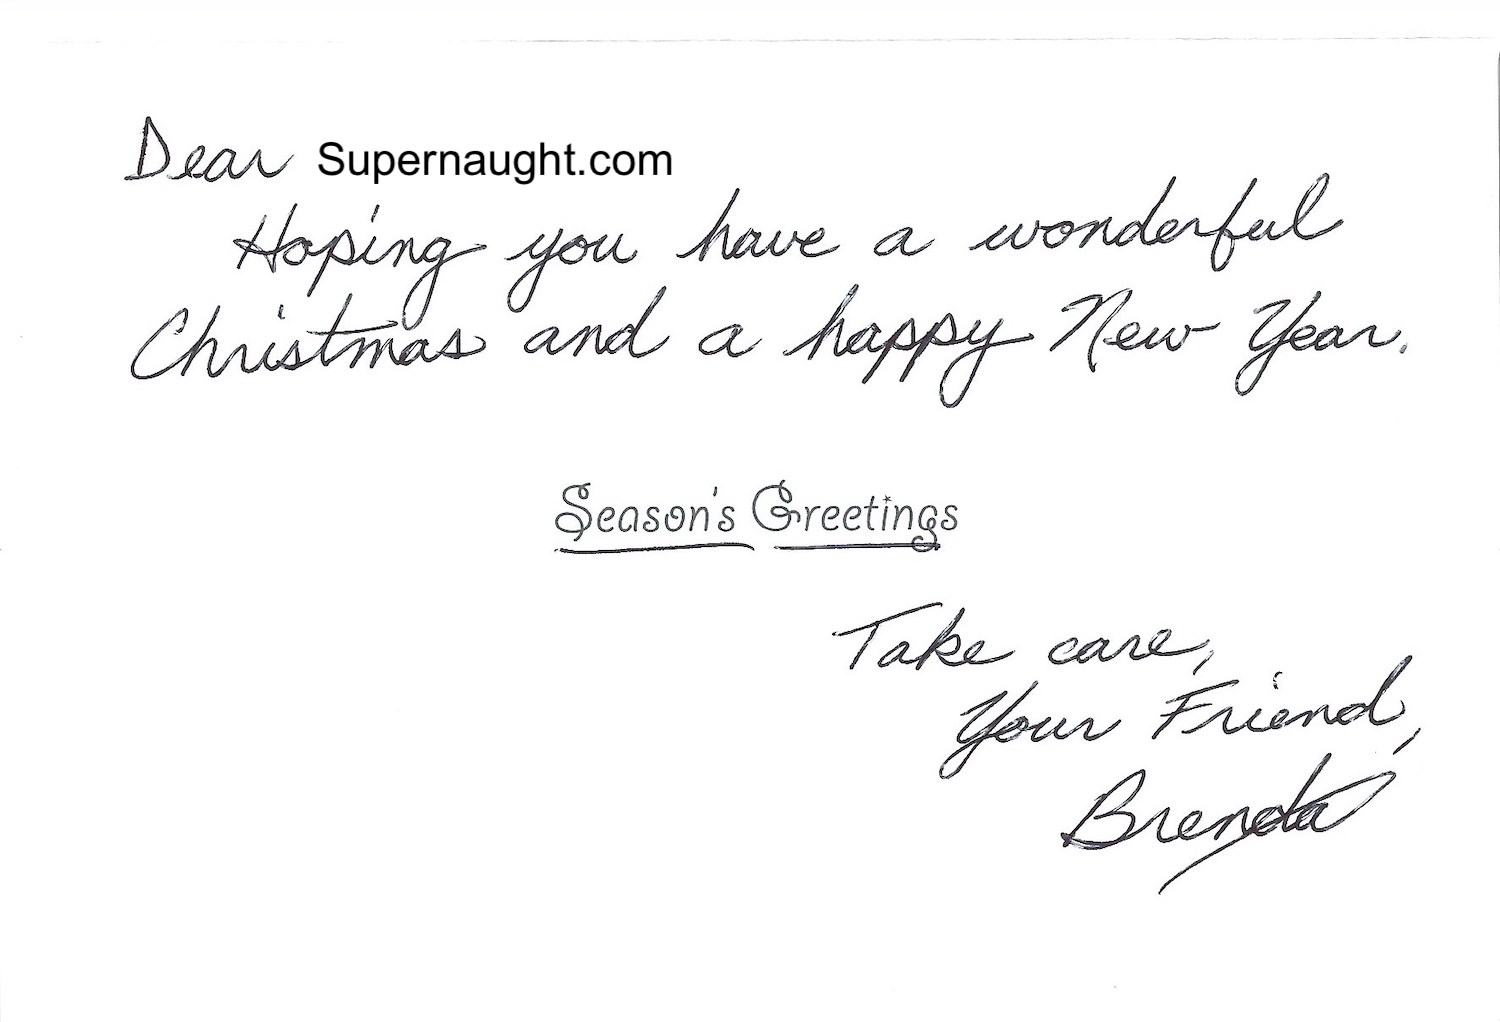 Dear Supernaught.com
Hoping you have a wonderful
Christmas and a happy New Year.
Season's Greetings
Take care,
Your Friend,
Brenda